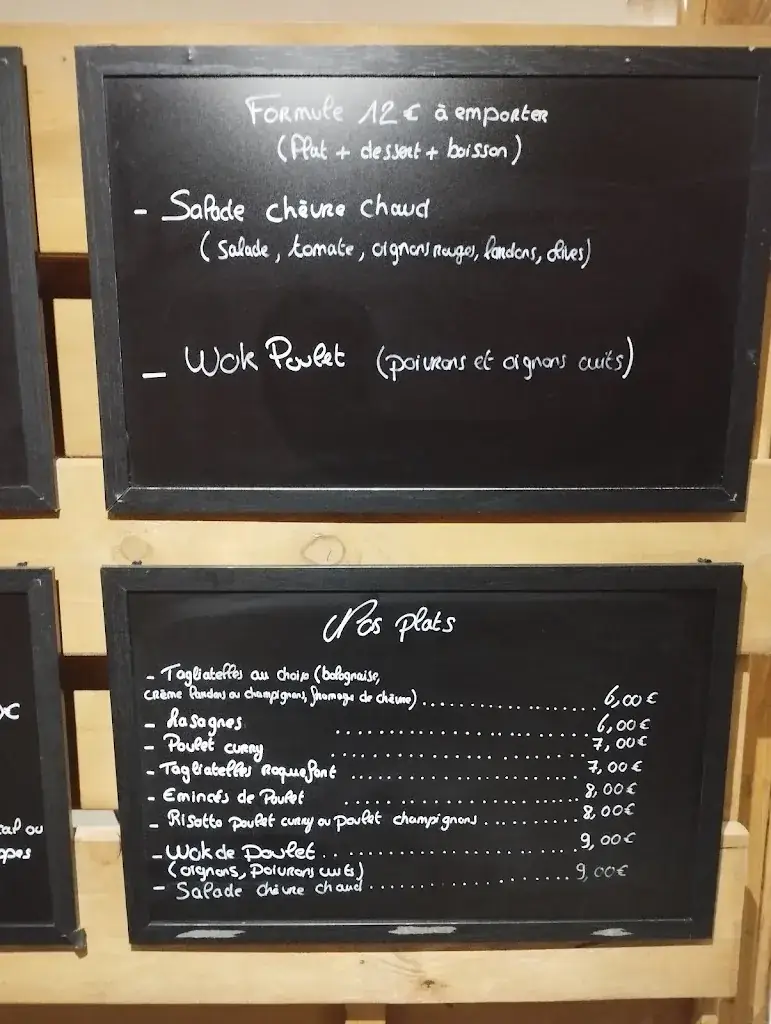 Formule 12 € à emporter
(Plat + dessert + boisson)
- Salade chèvre chaud
(Salade, tomate, oignons rouges, lardons, olives)
- Wok Poulet (poivrons et oignons cuits)
Nos plats
- Tagliatelles au choix (bolognaise,
crème lardons ou champignons, fromage de chèvre) 6,00 €
- Lasagnes 6,00 €
- Poulet curry 7,00 €
- Tagliatelles Roquefort 7,00 €
- Emincés de Poulet 8,00 €
- Risotto poulet curry ou poulet champignons 8,00 €
- Wok de Poulet 9,00 €
(oignons, Poivrons cuits)
- Salade chèvre chaud 9,00 €
ou